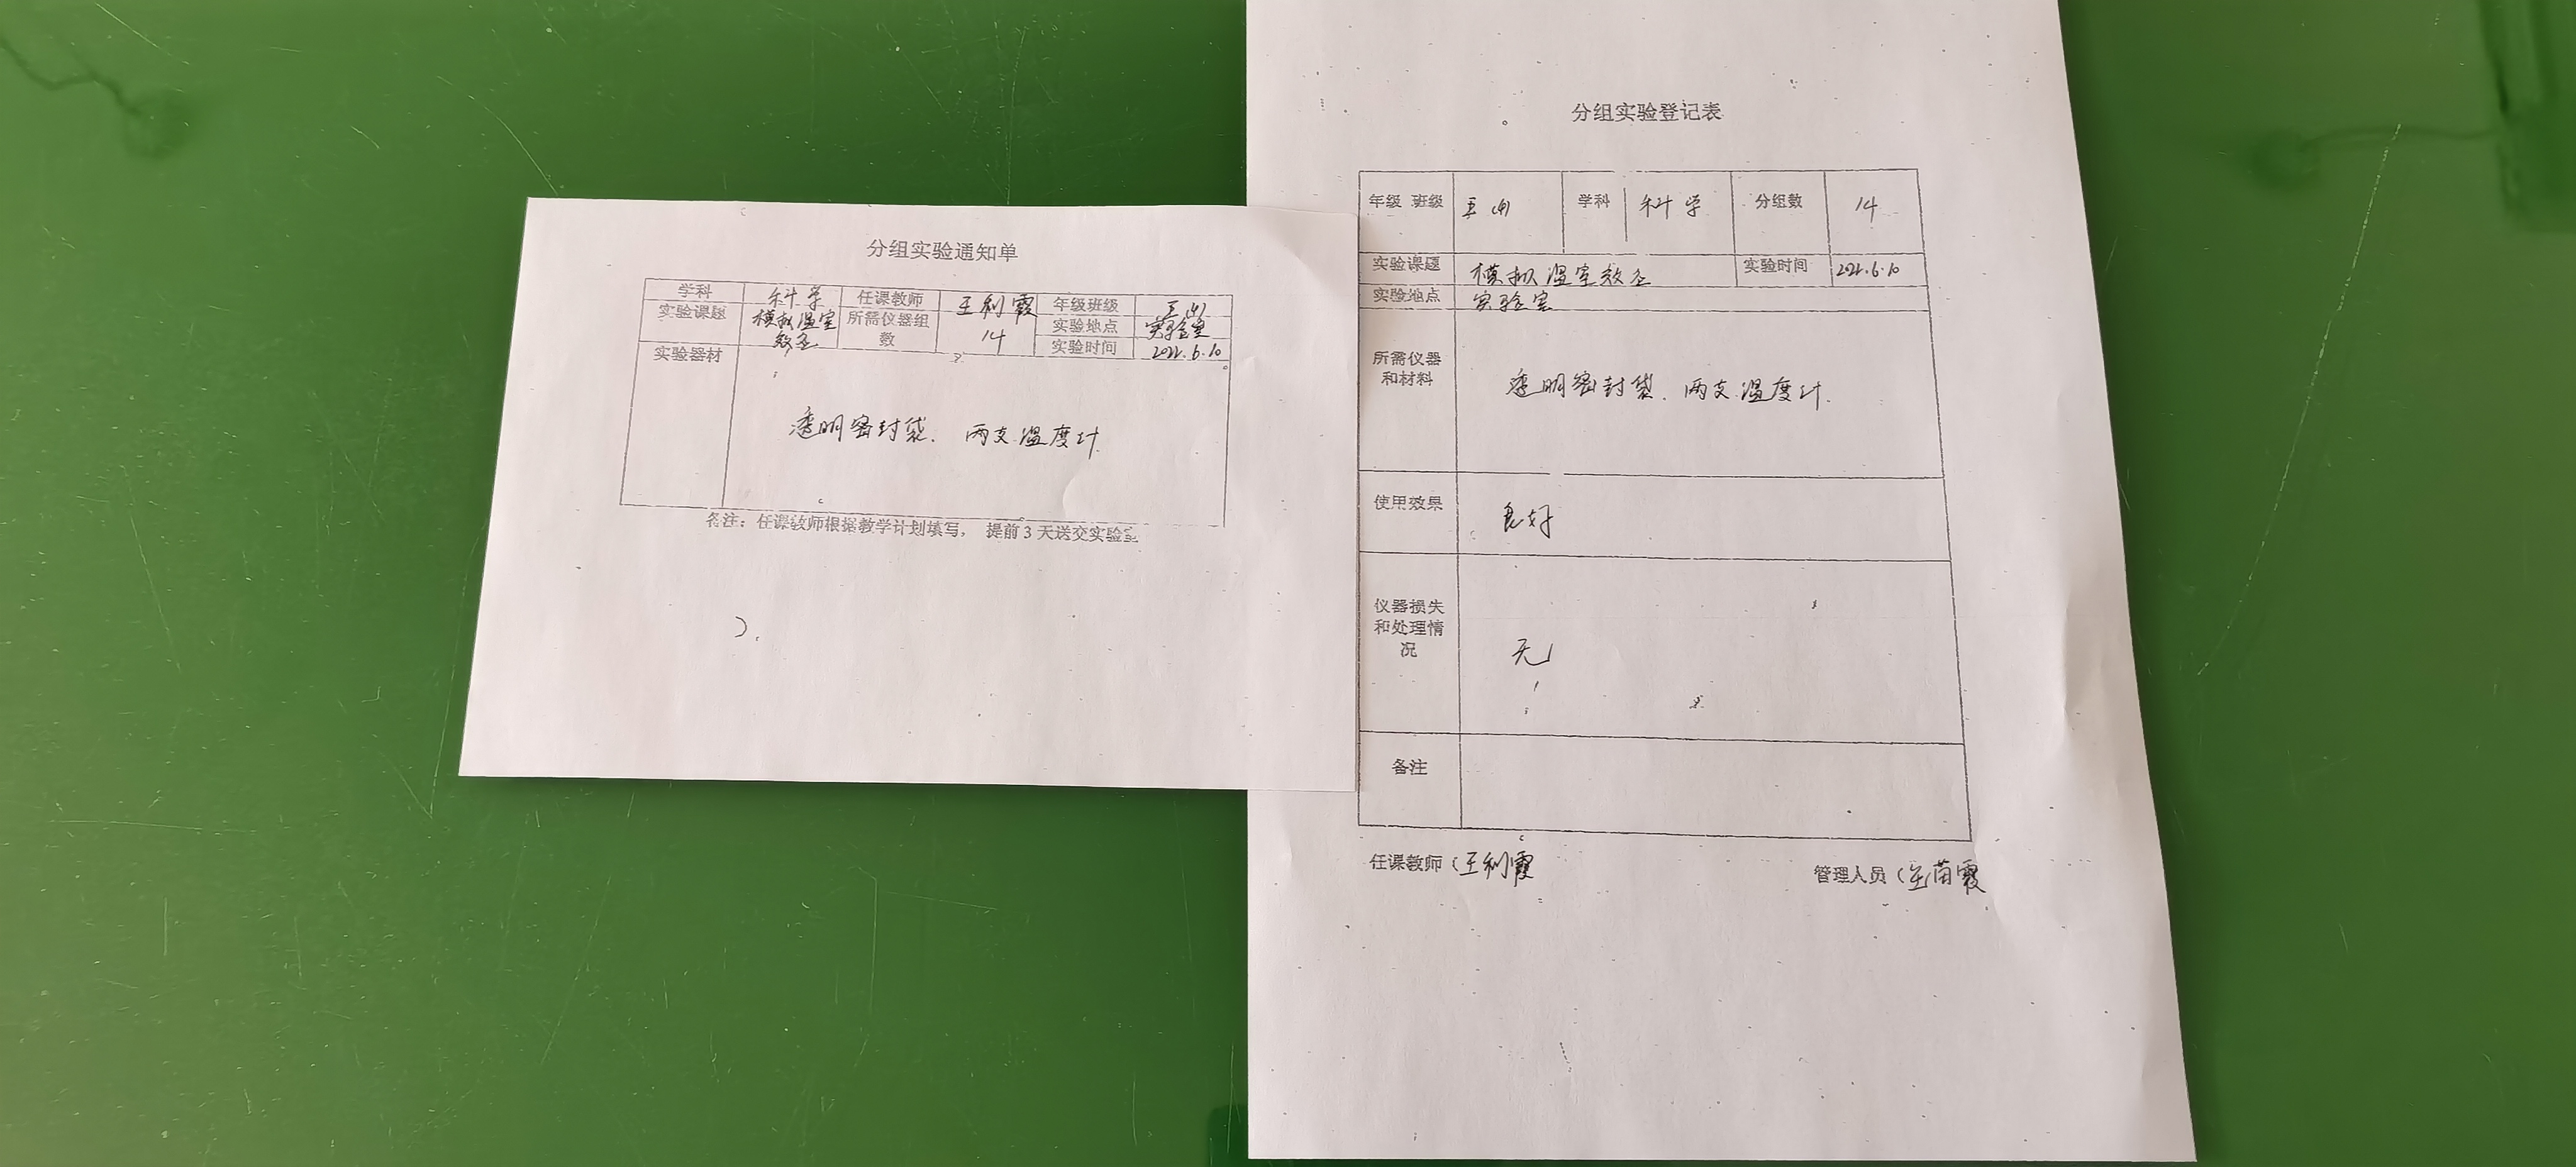 分组实验通知单
学科 科学 任课教师 王利霞 年级班级 五(4)
实验课题 模拟温室效应 所需仪器组数 14 实验地点 实验室
实验时间 2022.6.10
实验器材 透明密封袋、两支温度计
备注：任课教师根据教学计划填写， 提前 3 天送交实验室
分组实验登记表
年级 班级 五(4) 学科 科学 分组数 14
实验课题 模拟温室效应 实验时间 2022.6.10
实验地点 实验室
所需仪器和材料 透明密封袋、两支温度计.
使用效果 良好
仪器损失和处理情况 无
备注
任课教师（王利霞 管理人员（苗霞